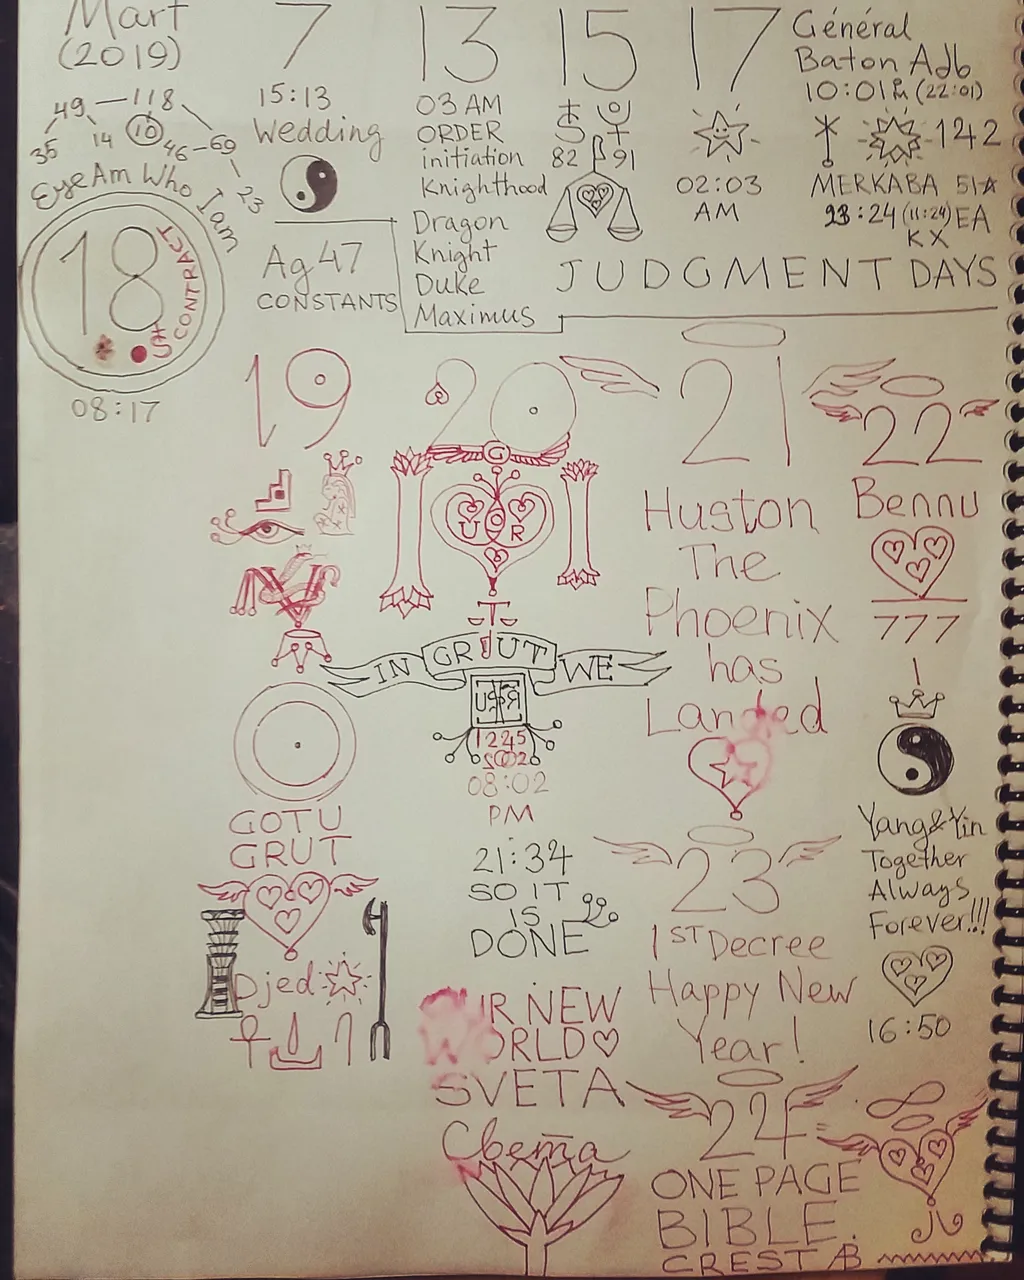 Mart
(2019)
49 118
35 14 10 46 69
23
Eye Am Who
I am
18
CONTRACT
08:17
7
15:13
Wedding
Ag 47
CONSTANTS
13
03 AM
ORDER
initiation
Knighthood
Dragon
Knight
Duke
Maximus
15
82 91
17
02:03
AM
Général
Baton Adb
10:01 Pm (22:01)
142
MERKABA 51
23:24 (11:24) EA
KX
JUDGMENT DAYS
19
GOTU
GRUT
Djed
20
G
U O R
IN GRUT WE
1245
08:02
PM
21:34
SO IT
IS
DONE
OUR NEW
WORLD
SVETA
Света
21
Huston
The
Phoenix
has
Landed
22
Bennu
777
1
Yang & Yin
Together
Always
Forever!!!
16:50
23
1ST Decree
Happy New
Year!
24
ONE PAGE
BIBLE.
CREST AB